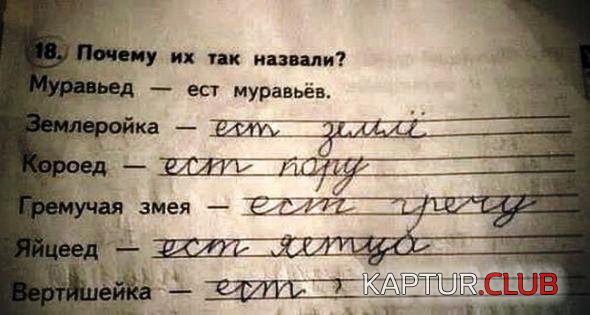 18. Почему их так назвали?
Муравьед — ест муравьёв.
Землеройка — ест землё
Короед — ест пору
Гремучая змея — ест гречу
Яйцеед — ест яетца
Вертишейка — ест ?
KAPTUR.CLUB